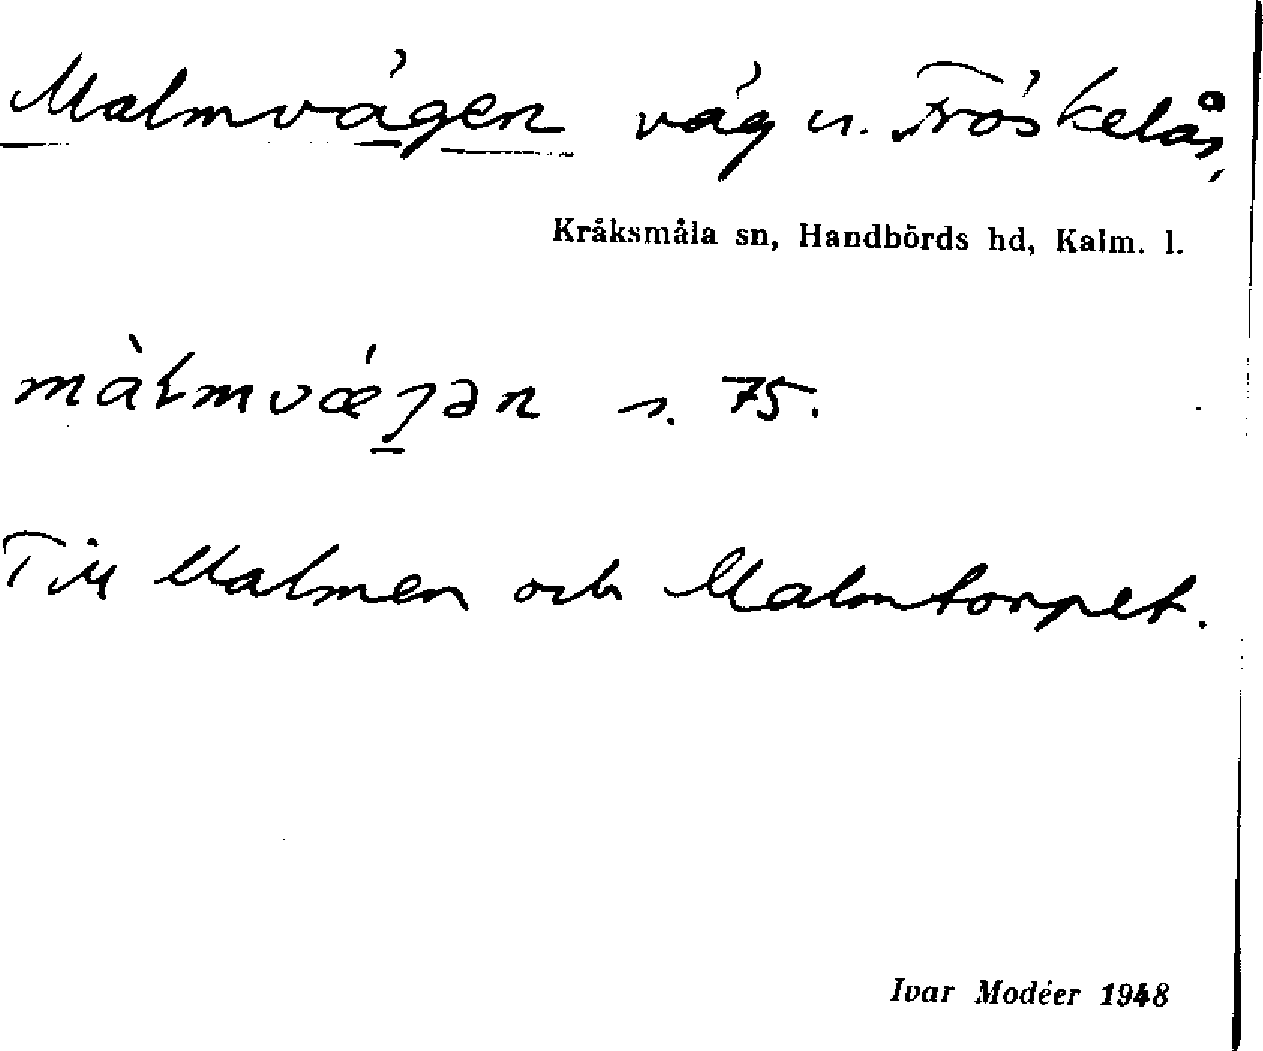 Malmvägen väg u. Fröskelås,
Kråksmåla sn, Handbörds hd, Kalm. l.
màlmvǽgən s. 75.
Till Malmen och Malmtorpet.
Ivar Modéer 1948